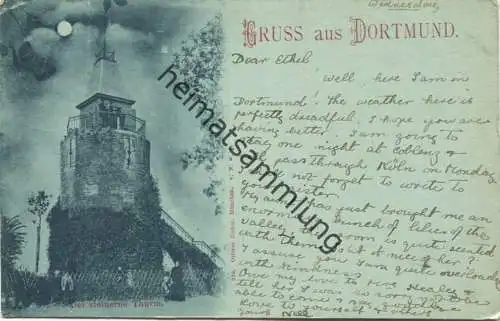 Wednesday
GRUSS aus DORTMUND.
Dear Ethel
Well, here I am in
Dortmund! The weather here is
perfectly dreadful, I hope you are
having better. I am going to
stay one night at Coblenz &
pass through Köln on Monday
not forget to write to
your sister.
just brought me an
enormous bunch of lilies of the
valley room is quite scented
with them of her?
I assure you I am quite overloaded
with kindness
Give love to
tell her I was so sorry
able to come
love to yourself & others
yours Nell
Der steinerne Thurm.
heimatsammlung